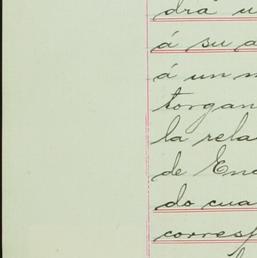 drá u
á su a
á un m
torgan
la rela
de Ene
do cua
corresp